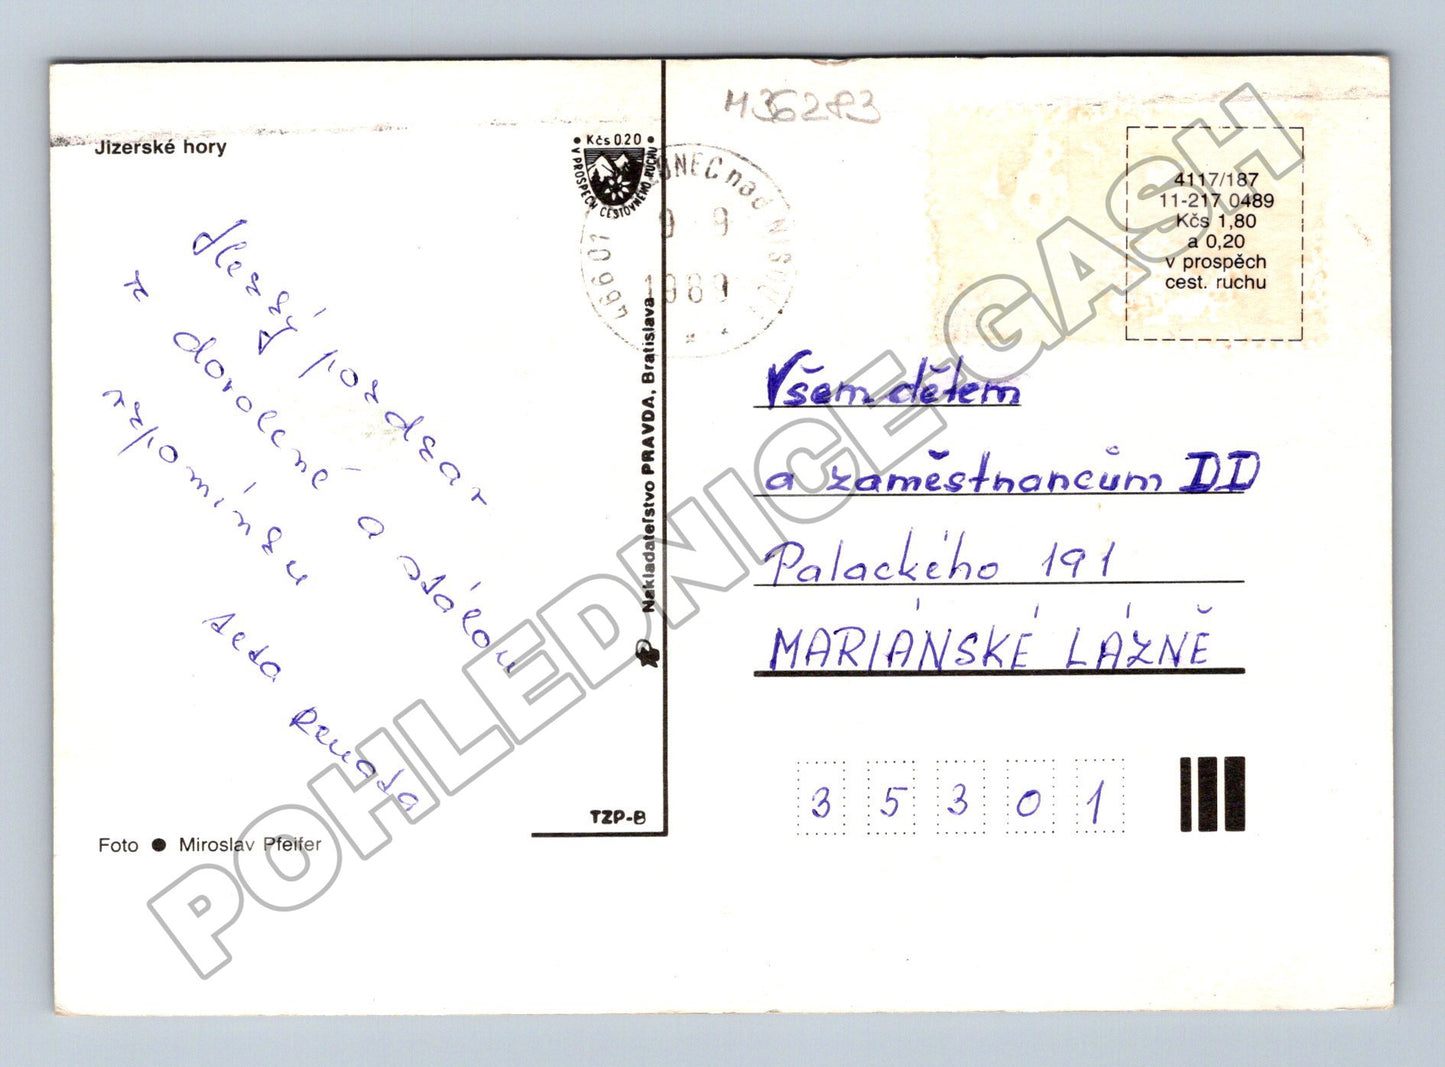 M36283
Jizerské hory
Kčs 0.20
V PROSPĚCH CESTOVNÉHO RUCHU
466 01 NEC nad NISOU
9 9
1989
4117/187
11-217 0489
Kčs 1,80
a 0,20
v prospěch
cest. ruchu
Hezký pozdrav
z dovolené a stálou
vzpomínku
teta Renata
Nakladateľstvo PRAVDA, Bratislava
TZP-B
Foto ● Miroslav Pfeifer
Všem dětem
a zaměstnancům DD
Palackého 191
MARIÁNSKÉ LÁZNĚ
35301
POHLEDNICE-GASH